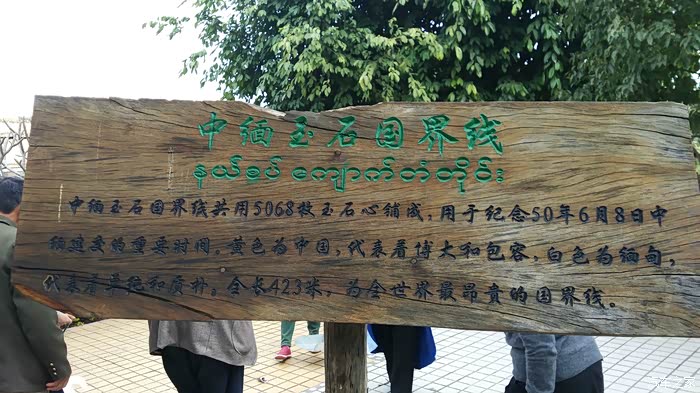 中缅玉石国界线
နယ်စပ် ကျောက်တံတိုင်း
中缅玉石国界线共用5068枚玉石心铺成，用于纪念50年6月8日中
缅建交的重要时间。黄色为中国，代表着博大和包容，白色为缅甸，
代表着单纯和质朴。全长423米，为全世界最昂贵的国界线。